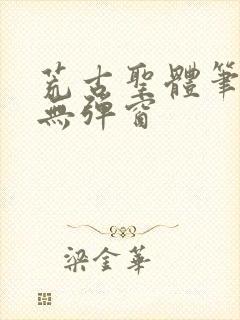 荒古聖體筆
無彈窗
梁金華